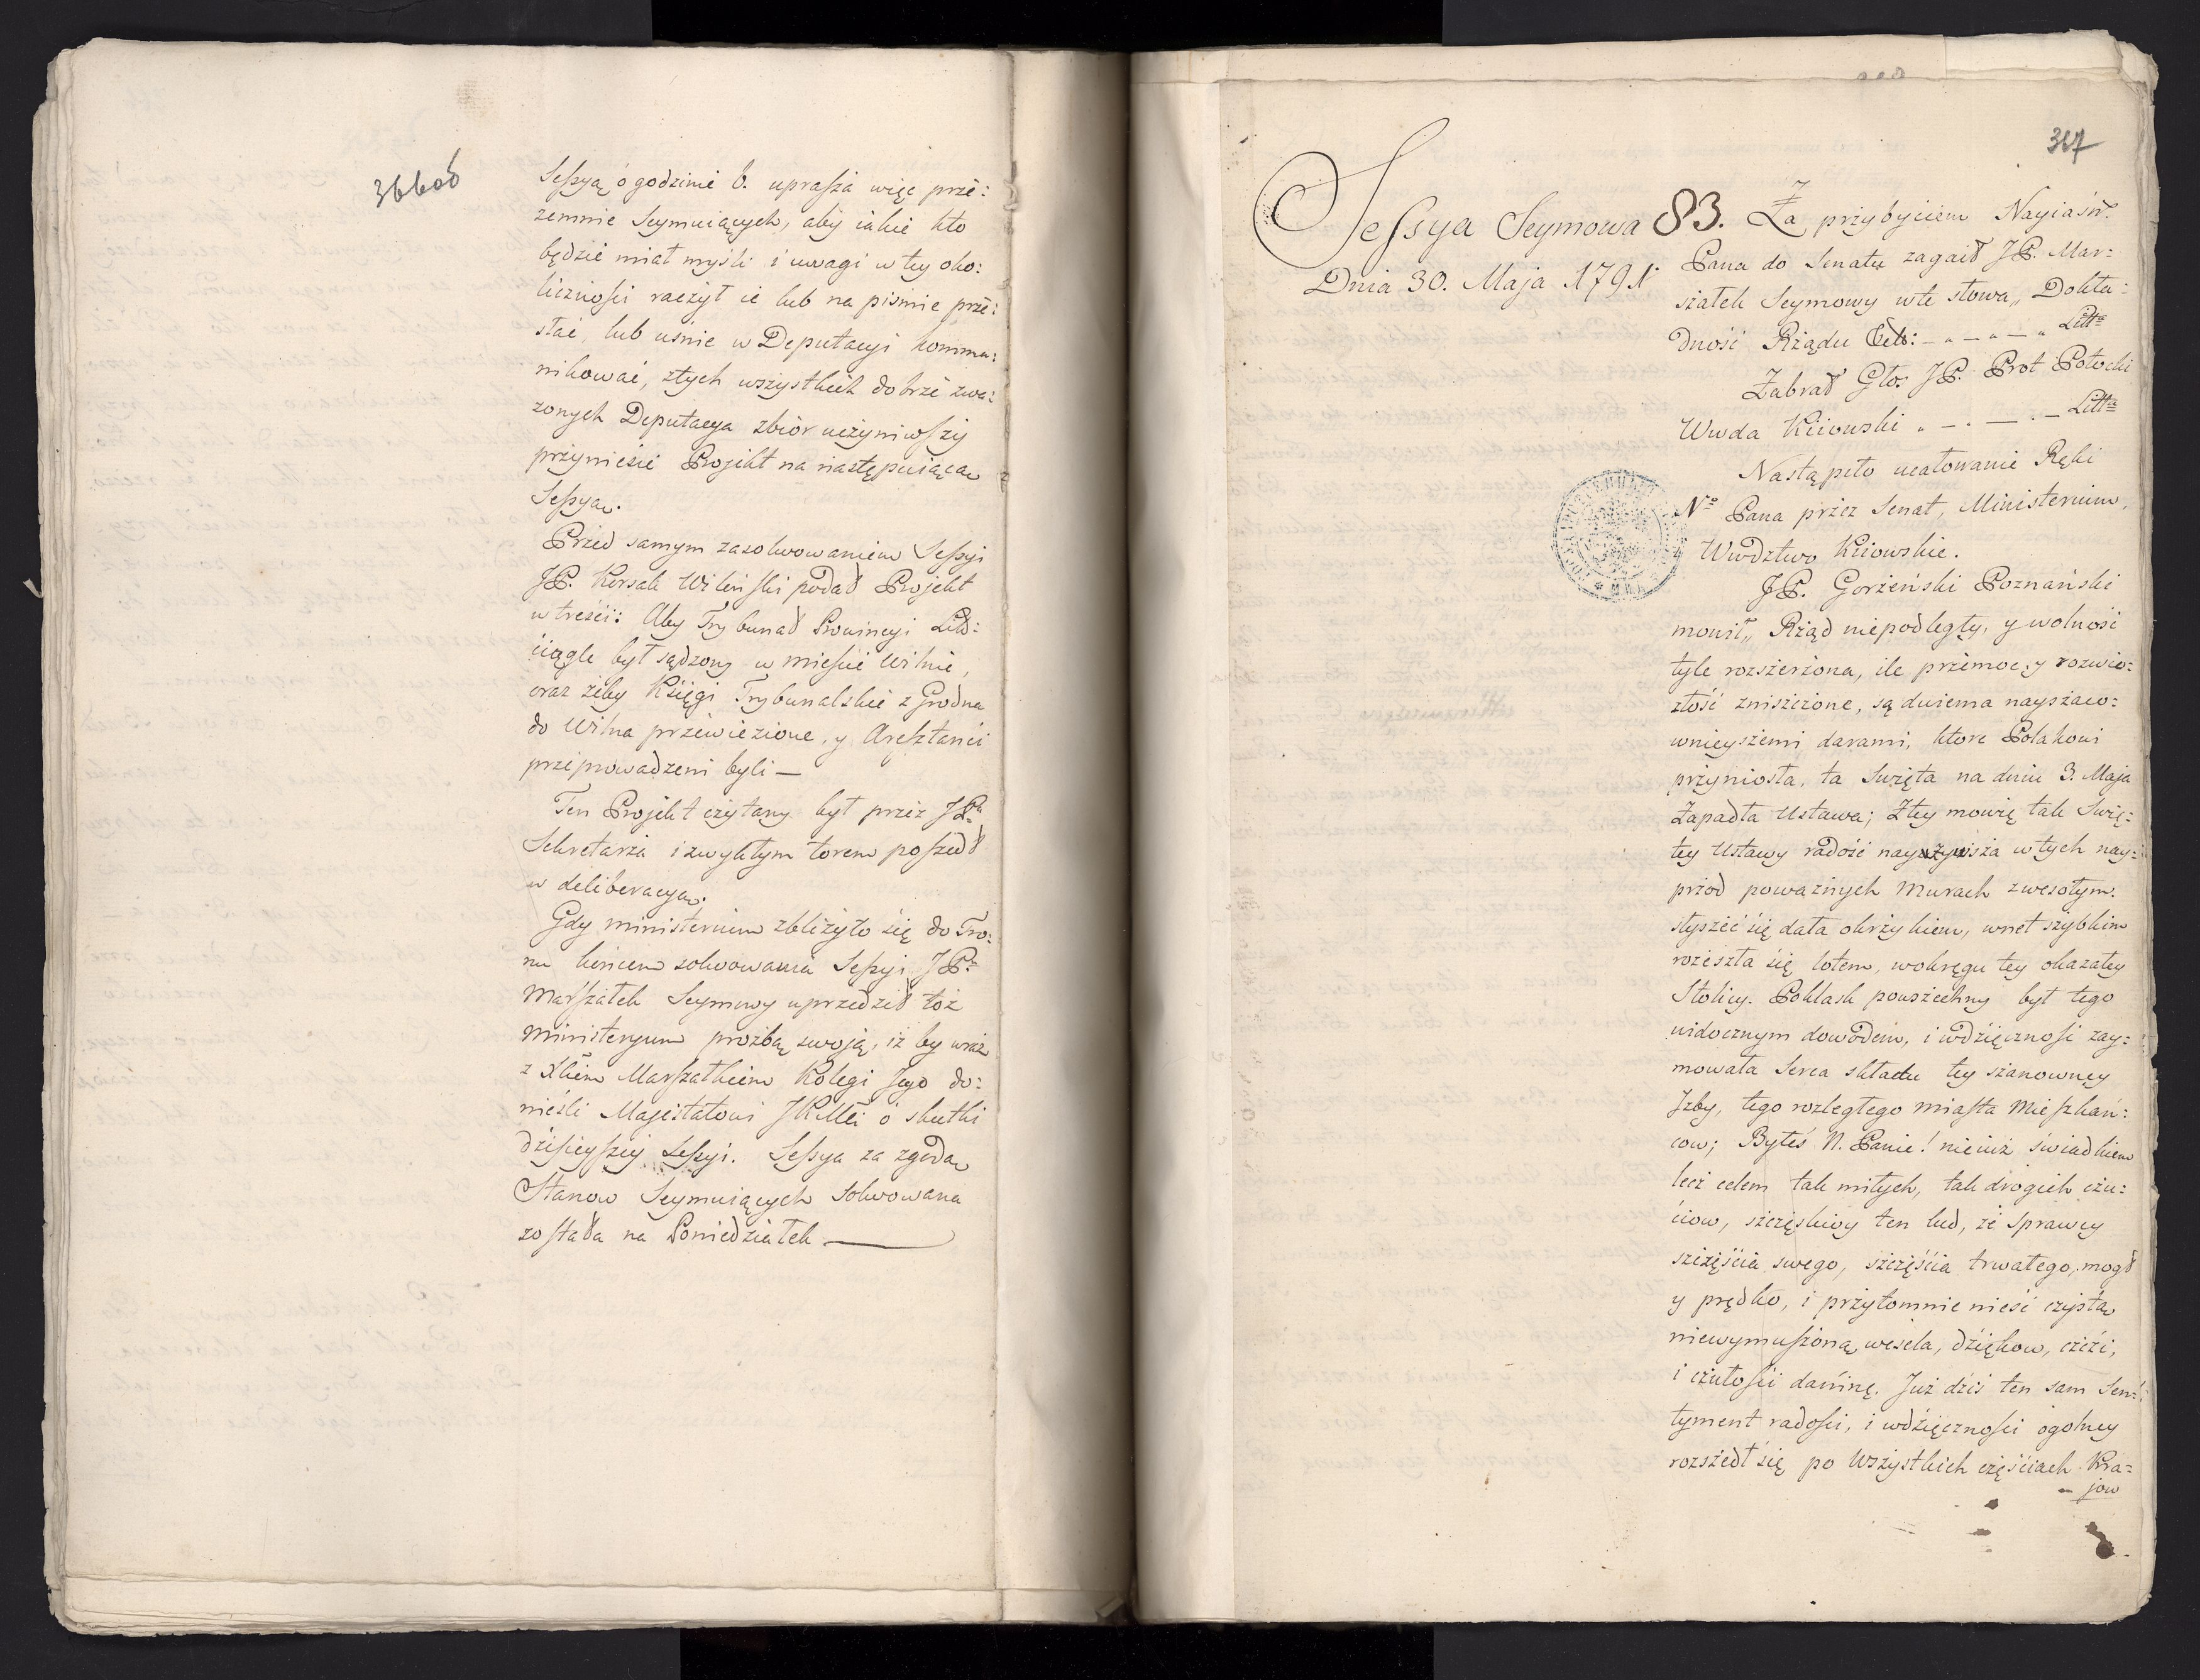 366 об
Sessyą o godzinie 6. uprasza więc prze:
zemnie Seymuiących, aby iakie kto
będzie miał myśli i uwagi w tey oko:
liczności raczył ie lub na piśmie prze:
słać, lub uśnie w Deputacyi kommu:
nikować, z tych wszystkich dobrze zwa:
żonych Deputacya zbior uczyniwszy
przyniesie Projekt na następuiącą
Sessyą.
Przed samym zasolwowaniem Sessyi
JP. Korsak Wileński podał Projekt
w treści: Aby Trybunał Prowincyi Litt:
ciągle był sądzony w mieście Wilnie,
oraz żeby Księgi Trybunalskie z Grodna
do Wilna przewiezione, y Aresztanci
przeprowadzeni byli —
Ten Projekt czytany był przez JPa
Sekretarza i zwykłym torem poszedł
w deliberacyą.
Gdy ministerium zbliżyło się do Tro:
nu końcem solwowania Sessyi JP.
Marszałek Seymowy uprzedził toż
Ministeryum prożbą swoją, iż by wraz
z Xciem Marszałkiem Kolegi Jego do:
nieśli Majestatowi JKMci o skutki
dzisieyszey Sessyi. Sessya za zgodą
Stanow Seymuiących Solwowana
została na Poniedziałek —
367
Sessya Seymowa 83.
Dnia 30. Maja 1791.
Za przybyciem Nayiaśn.
Pana do Senatu zagaił JP. Mar:
szałek Seymowy w te słowa „ Dokła:
dność Rządu Etc: – „ – „ – „ Litta
Zabrał Głos JP. Prot Potocki
Wwda Kiiowski „ – . — . – Litta
Nastąpiło ucałowanie Ręki
No Pana przez Senat, Ministerium,
Wwdztwo Kiiowskie.
JP. Gorzeński Poznański
mowił „ Rząd niepodległy, y wolność
tyle rozszerzona, ile przemoc, y rozwio:
złość zniszczone, są dwiema nayszaco:
wnieyszemi darami, ktore Polakowi
przyniosła, ta Swięta na dniu 3. Maja
Zapadła Ustawa; Z tey mowię tak Swię:
tey Ustawy radość nayżywsza w tych nay:
przod poważnych Murach z wesołym
słyszeć się dała okrzykiem, wnet szybkim
rozeszła się lotem, wokręgu tey okazałey
Stolicy. Poklask powszechny był tego
widocznym dowodem, i wdzięczności zay:
mowała Serca składu tey szanowney
Izby, tego rozległego miasta Mieszkań:
cow; Byłeś N. Panie! nie iuż świadkiem
lecz celem tak miłych, tak drogich czu:
ciow, szczęśliwy ten lud, że Sprawcy
szczęścia swego, szczęścia trwałego, mogł
y prędko, i przytomnie nieść czystą
niewymuszoną, wesela, dzięków, czci,
i czułości daninę. Już dziś ten sam Sen:
tyment radości, i wdzięczności ogolney
rozszedł się po Wszystkich częściach Kra:
jow